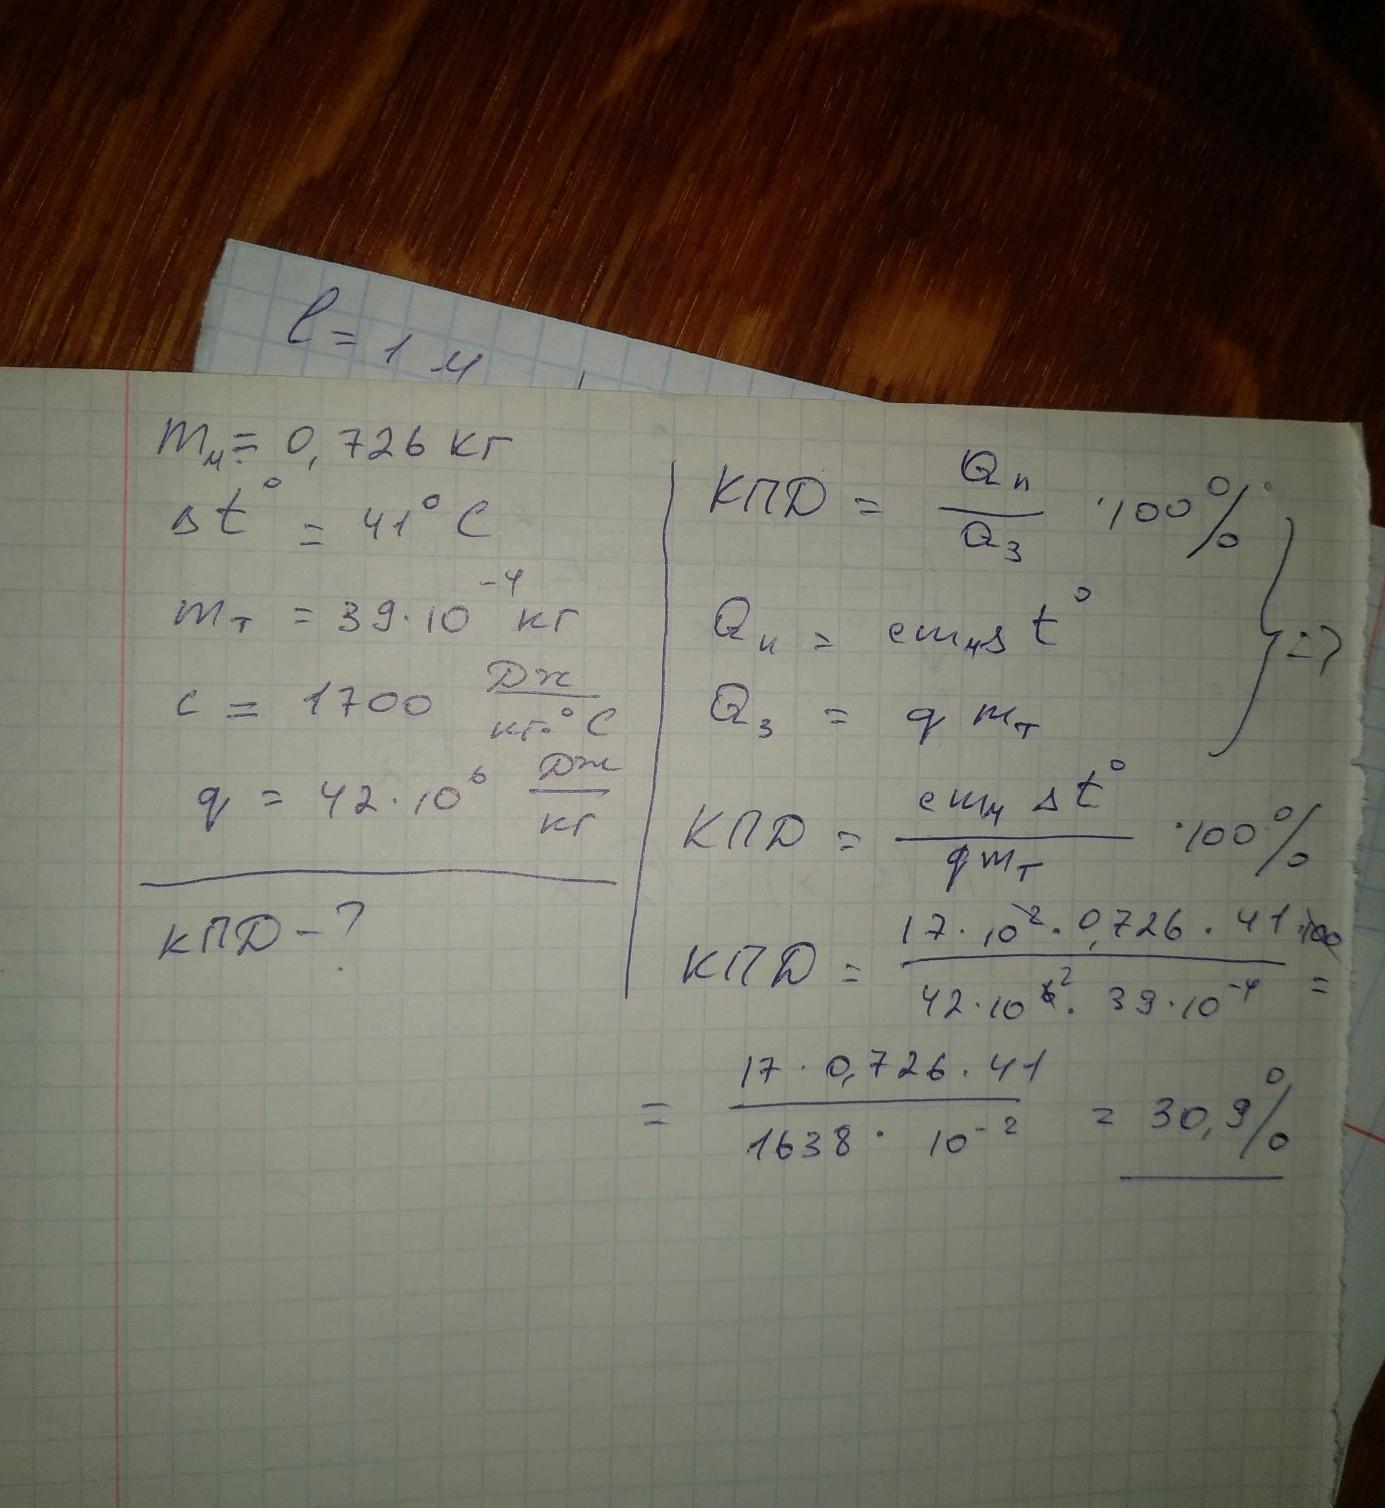 l = 1 м
mм = 0,726 кг
Δt° = 41°C
mт = 39·10⁻⁴ кг
c = 1700 Дж/кг·°C
q = 42·10⁶ Дж/кг
КПД - ?
КПД = Qп/Qз ·100%
Qп = cmмΔt°
Qз = qmт
=>
КПД = cmмΔt°/qmт ·100%
КПД = 17·10²·0,726·41·100/42·10⁶ ²·39·10⁻⁴ =
= 17·0,726·41/1638·10⁻² = 30,9%